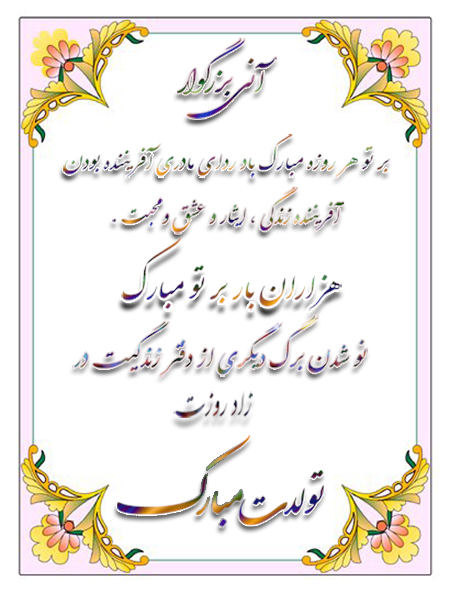 آنی بزرگوار
بر تو هر روزه مبارک باد ردای مادری آفریننده بودن
آفریننده زندگی ، ایثار و عشق و محبت .
هزاران بار بر تو مبارک
نو شدن برگ دیگری از دفتر زندگیت در
زاد روزت
تولدت مبارک